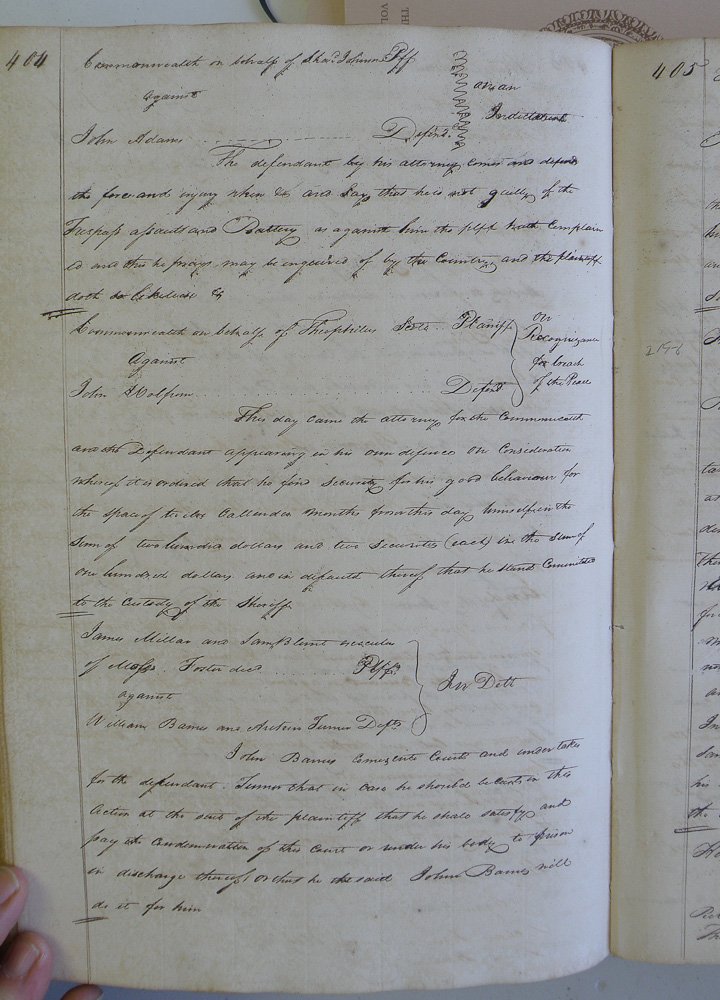 404
Commonwealth on behalf of Thos. Johnson Plff
against
on an
Indictment
John Adams Defendt.
The defendant by his attorney comes and defends
the force and injury when &c and Says that he is not guilty of the
Trespass assault and Battery as against him the pltf hath Complain
ed and this he prays may be inquired of by the Country and the plaintiff
doth so likewise &c
Commonwealth on behalf of Theophilus Plantiff
Against
John Defendt
on
Recognizance
for breach
of the Peace
This day came the attorney for the Commonwealth
and the Defendant appearing in his own defence On Consideration
whereof it is ordered that he find Security for his good behaviour for
the space of twelve Callender months from this day himself in the
Sum of two hundred dollars and two Securites (each) in the Sum of
one hundred dollars and in default thereof that he Stand Committed
to the Custody of the Sheriff
James Millan and Saml. Blunt
of Foster decd Plffs
against
William Barnes and Turner Defts
In Debt
John Barnes comes into Court and undertakes
for the defendant Turner that in case he should be cast in this
Action at the suit of the plaintiff that he shall satisfy and
pay the Condemnation of this Court or render his body to prison
in discharge thereof or that he the said John Barnes will
do it for him
405